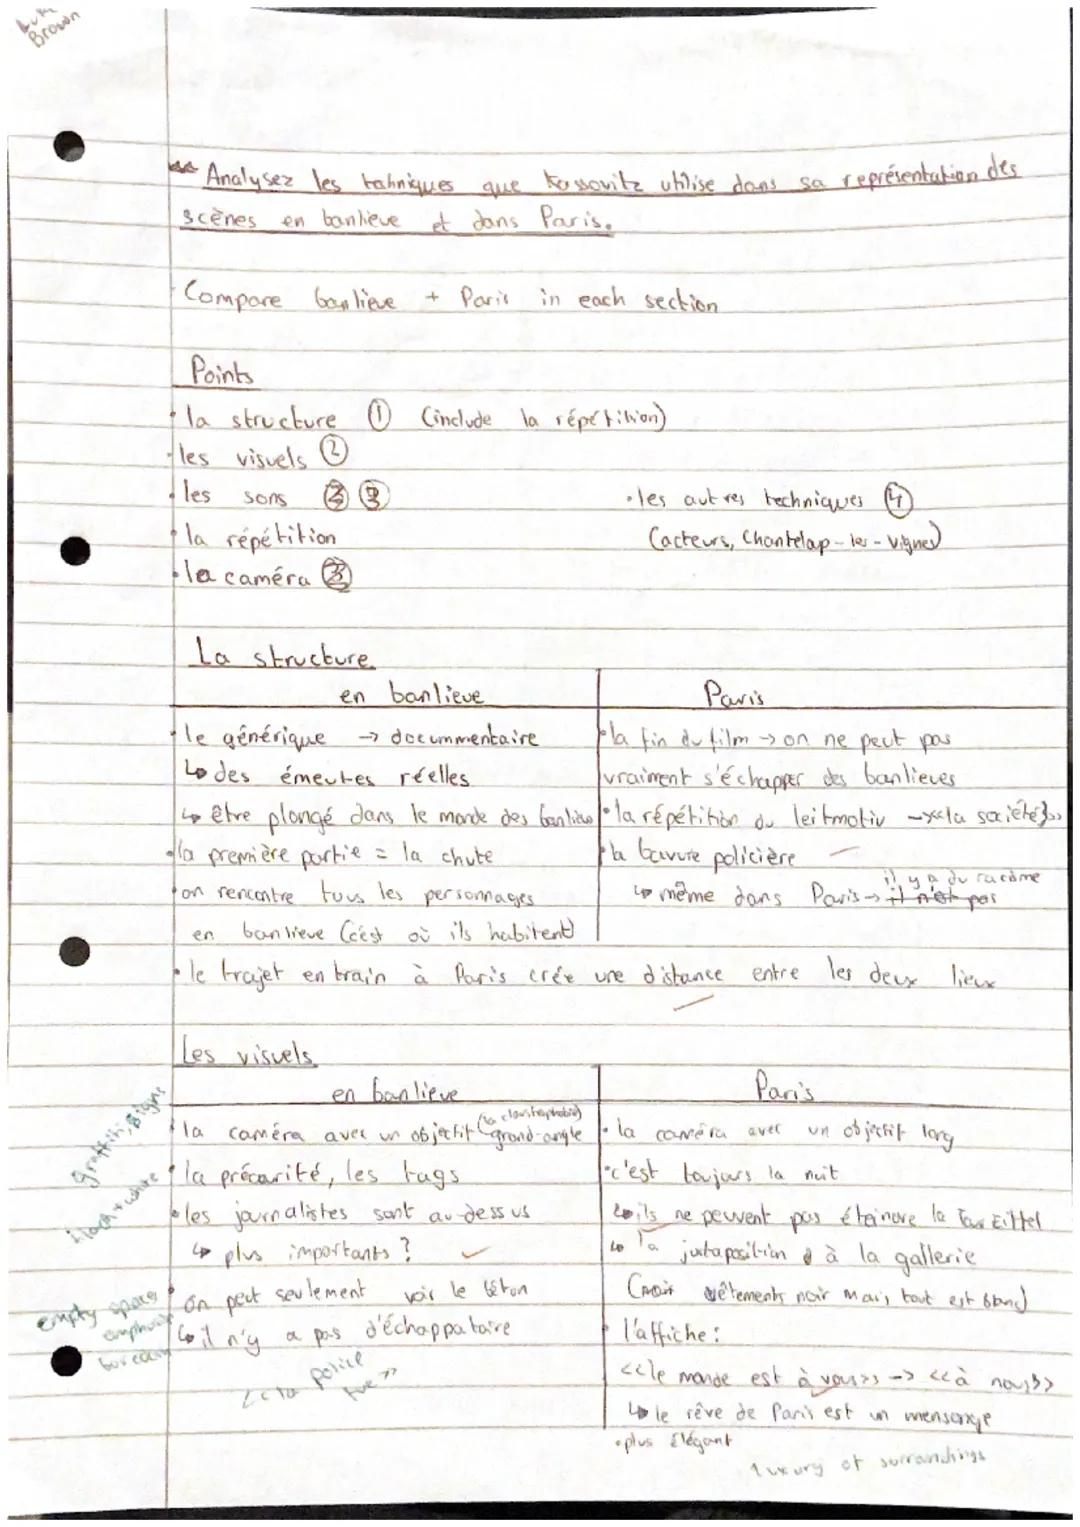 Luke
Brown
Analysez les tahniques que Kassovitz utilise dans sa représentation des
scènes en banlieue et dans Paris.
Compare banlieue + Paris in each section
Points
• la structure ① (include la répétition)
• les visuels ②
• les sons ③
• les autres techniques ④
• la répétition
(acteurs, Chantelap-les-Vignes)
• la caméra
La structure
en banlieue
Paris
• le générique → docummentaire
↳ des émeutes réelles
↳ être plongé dans le monde des banlieues
• la première partie = la chute
• on rencontre tous les personnages
en banlieue (c'est où ils habitent)
• la fin du film → on ne peut pas
vraiment s'échapper des banlieues
• la répétition du leitmotiv → «la société»
• la bavure policière
↳ même dans Paris → il y a du racisme
il n'est pas
• le trajet en train à Paris crée une distance entre les deux lieux
Les visuels
en banlieue
Paris
• la caméra avec un objectif grand-angle
(la claustrophobie)
• la précarité, les tags
• les journalistes sont au-dessus
↳ plus importants?
• on peut seulement voir le béton
↳ il n'y a pas d'échappatoire
<<la police tue>>
graffiti, signs
black + white
empty space
emphasis
boredom
• la caméra avec un objectif long
• c'est toujours la nuit
↳ ils ne peuvent pas éteindre la Tour Eiffel
↳ la juxtaposition à la gallerie
(vêtements noir mais tout est blanc)
• l'affiche:
<<le monde est à vous>> → <<à nous>>
↳ le rêve de Paris est un mensonge
• plus élégant
luxury of surrondings